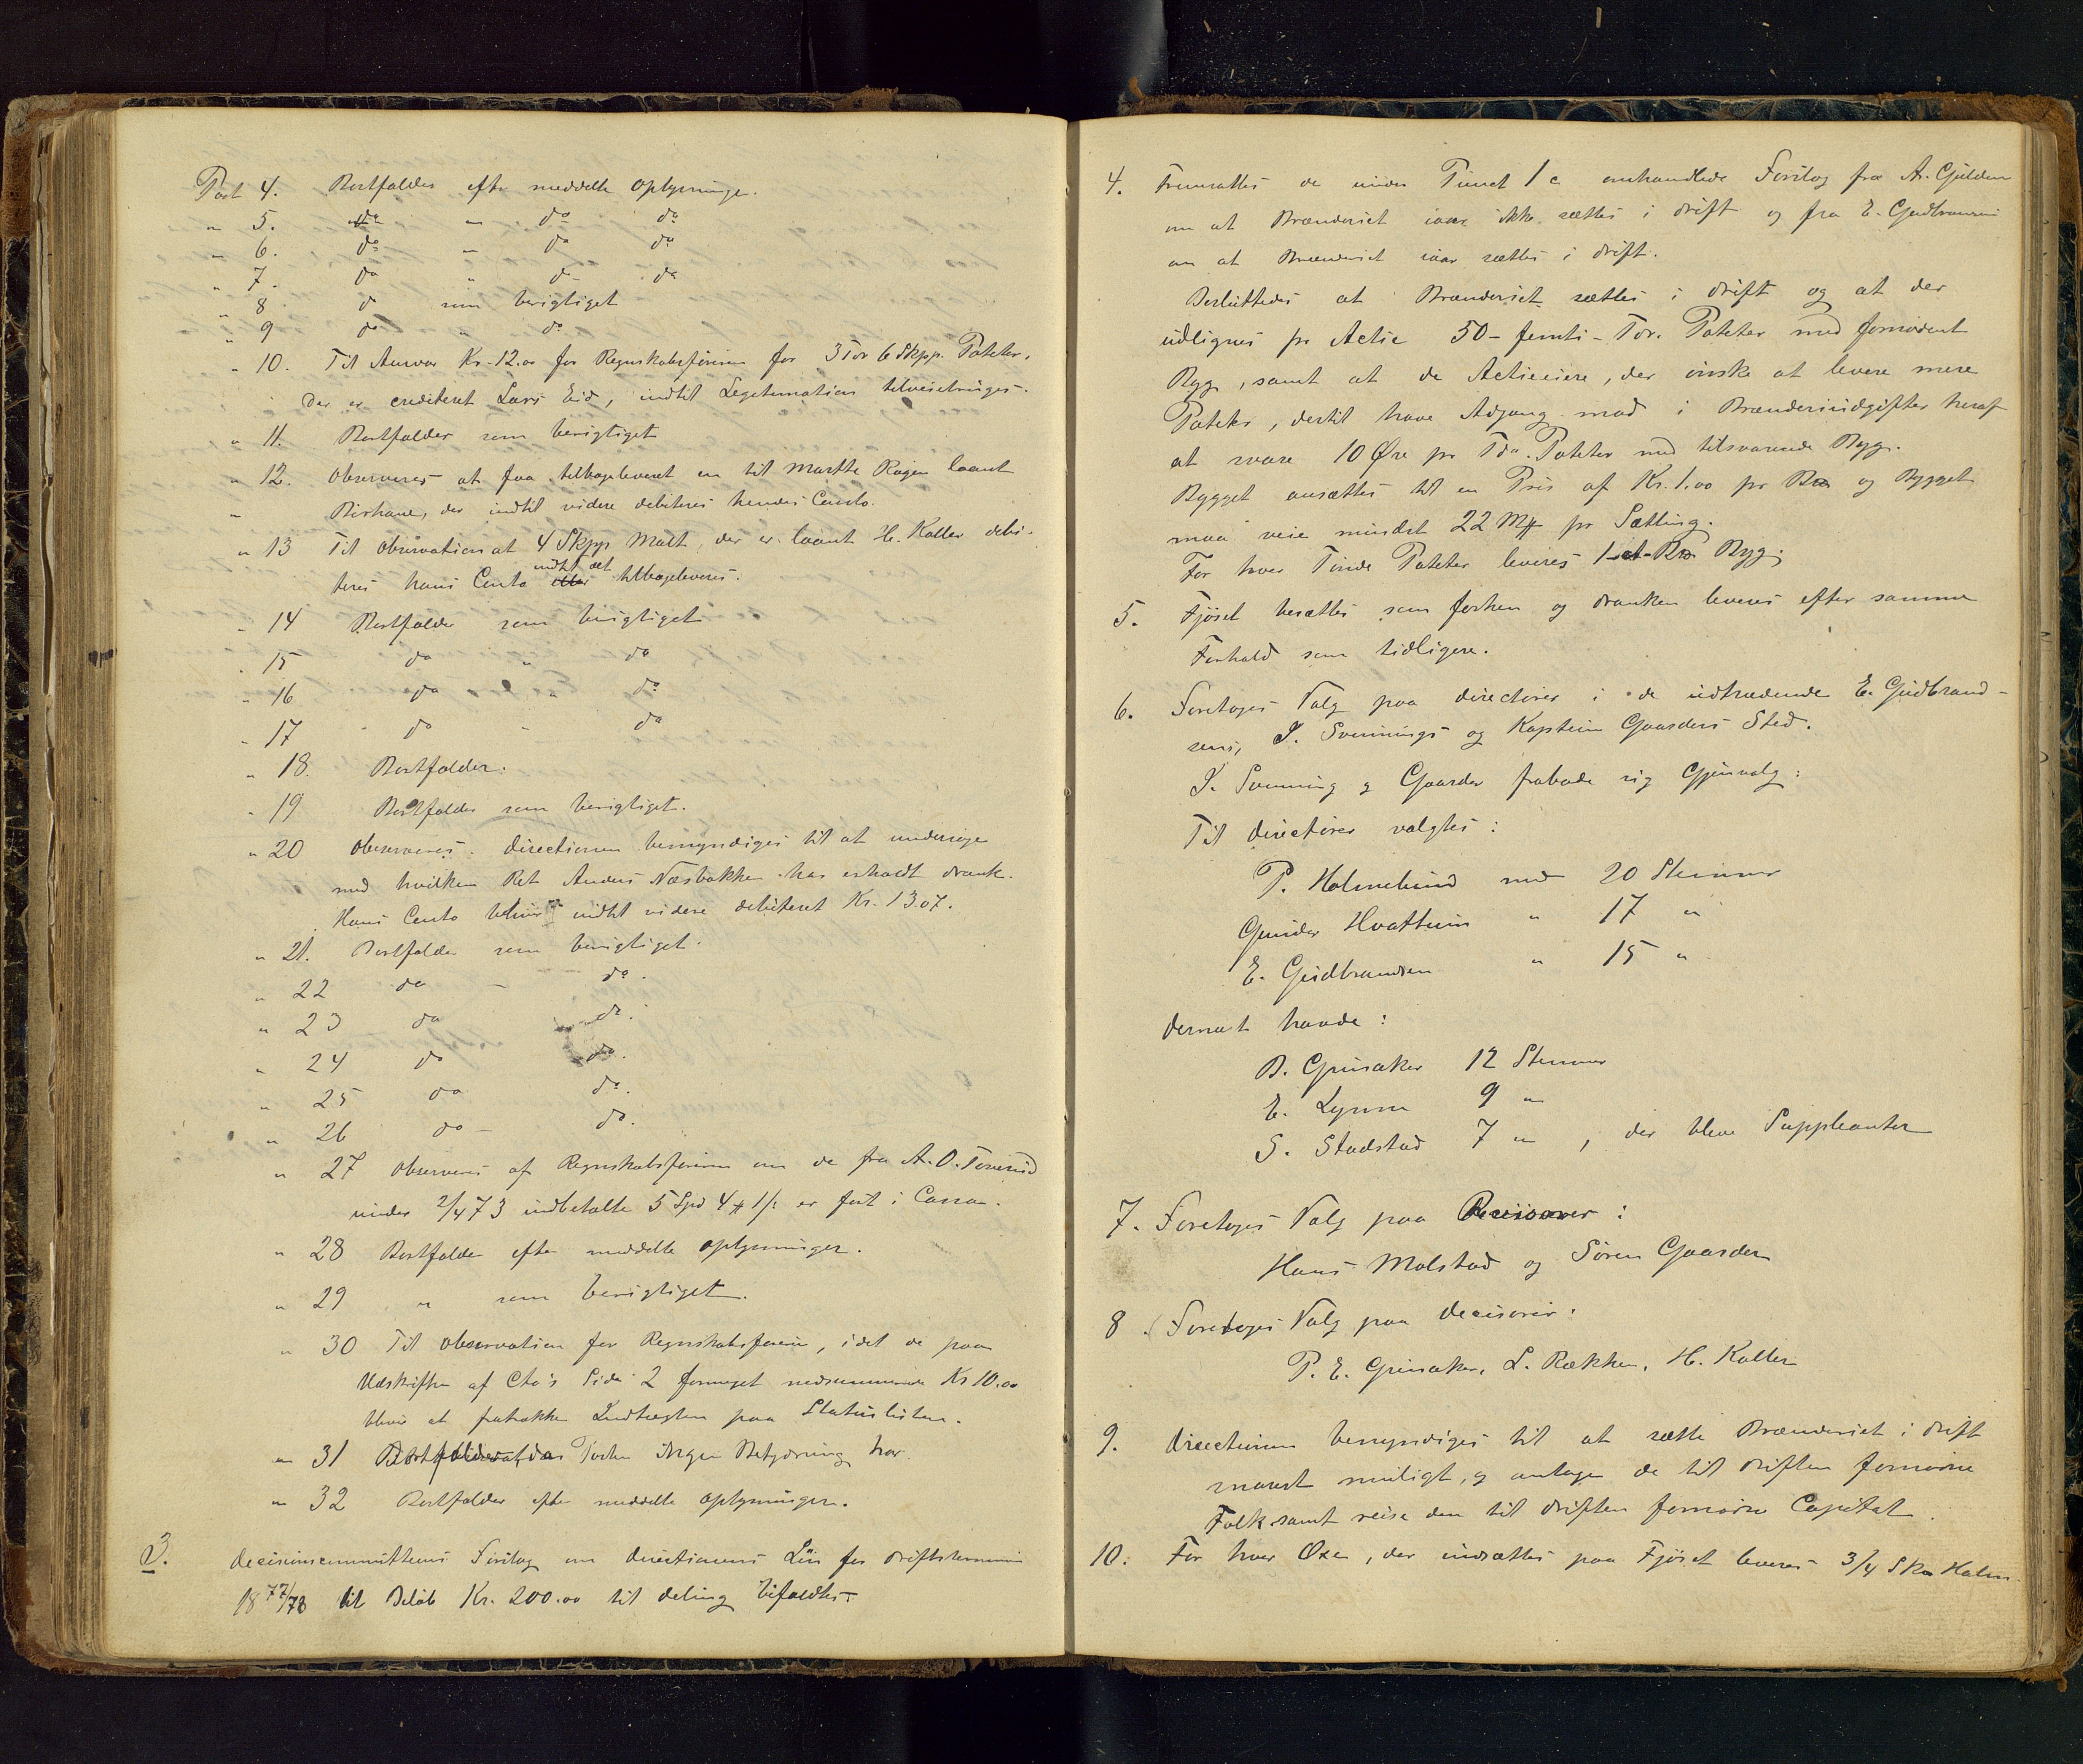 Post 4. Bortfalder efter meddelte Oplysninger.
" 5. do " do do
" 6. do " do do
" 7. do " do do
" 8 do som berigtiget
" 9 do " do
" 10. Til Ansvar Kr. 12.00 for Regnskabsføreren for 3 Tdr 6 Skpp. Poteter,
der er crediteret Lars Eid, indtil Legitimation tilveiebringes.
" 11. Bortfalder som berigtiget
" 12. Observeres at faa tilbageleveret en til Marthe Rogen laant
" Birhane, der indtil videre debiteres hendes Conto.
" 13 Til Observation at 4 Skpp Malt, der er laant H. Koller debi-
teres hans Conto indtil det tilbageleveres.
" 14 Bortfalder som berigtiget
" 15 do " do
" 16 do " do
" 17 do " do
" 18. Bortfalder.
" 19 Bortfalder som berigtiget.
" 20 Observeres. Directionen bemyndiges til at undersøge
med hvilken Ret Anders Næsbakken har erholdt Drank.
Hans Conto bliver indtil videre debiteret Kr. 13.07.
" 21. Bortfalder som berigtiget.
" 22 do - do.
" 23 do do.
" 24 do do.
" 25 do do.
" 26 do - do.
" 27 Observeres af Regnskabsføreren om de fra A. O. Toverud
under 2/4 73 indbetalte 5 Spd 4 # 1 /: er ført i Cassa.
" 28 Bortfalder efter meddelte Oplysninger.
" 29 " som berigtiget.
" 30 Til Observation for Regnskabsføreren, idet de paa
Udskriften af Cto's Side 2 formeget nedsummerede Kr 10.00
bliver at fratrække Indtægten paa Statuslisten.
" 31 Bortfalder, da Posten ingen Betydning har.
" 32 Bortfalder efter meddelte Oplysninger.
3. Decisionscommitteens Forslag om Directionens Løn for Driftsterminen
18 77/78 til Beløb Kr. 200.00 til Deling bifaldtes.
4. Fremsattes de under Punct 1 c omhandlede Forslag fra A. Gulden
om at Brænderiet iaar ikke sættes i Drift og fra E. Gudbrandsen
om at Brænderiet iaar sættes i Drift.
Besluttedes at Brænderiet sættes i Drift og at der
udlignes pr Actie 50 - femti - Tdr. Poteter med fornødent
Byg, samt at de Actieeiere, der ønske at levere mere
Poteter, dertil have Adgang mod i Brænderiudgifter heraf
at svare 10 Øre pr Tde. Poteter med tilsvarende Byg.
Bygget ansættes til en Pris af Kr. 1.00 pr og Bygget
maa veie mindst 22 pr Sætting.
For hver Tønde Poteter leveres 1 - et - Byg.
5. Fjøset besættes som forhen og Dranken leveres efter samme
Forhold som tidligere.
6. Foretoges Valg paa Directører i de udtrædende E. Gudbrand-
sens, J. Svennings og Kaptein Gaarders Sted.
J. Svenning og Gaarder frabade sig Gjenvalg:
Til Directører valgtes:
P. Holmelund med 20 Stemmer
Gunder Hvattum " 17 "
E. Gudbrandsen " 15 "
dernæst havde:
B. Grinaker 12 Stemmer
E. Lynne 9 "
S. Stadstad 7 " , der bleve Suppleanter
7. Foretoges Valg paa Revisorer:
Hans Molstad og Søren Gaarder
8. Foretoges Valg paa Decisorer:
P. E. Grinaker, L. Rækken, H. Koller
9. Directionen bemyndiges til at sætte Brænderiet i Drift
snarest muligt, og antage de til Driften fornødne
Folk samt reise den til Driften fornødne Capital.
10. For hver Oxe, der indsættes paa Fjøset leveres 3/4 Halm.